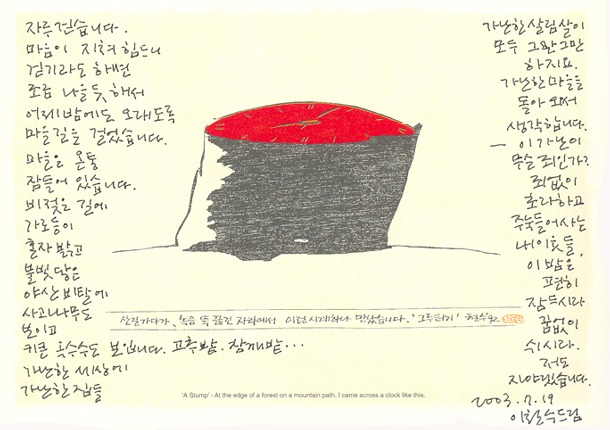 자주 걷습니다.
마음이 지쳐 힘드니
걷기라도 하면
조금 나을듯 해서
어제밤에도 오래도록
마을길을 걸었습니다.
마을은 온통
잠들어 있습니다.
비젖은 길에
가로등이
혼자 밝고
불빛 닿은
야산 비탈에
사과나무도
보이고
키큰 옥수수도 보입니다. 고추밭. 참깨밭...
가난한 세상에
가난한 집들
가난한 살림살이
모두 그만그만
하지요.
가난한 마을을
돌아 와서
생각합니다.
— 이 가난이
무슨 죄인가?
죄없이
초라하고
주눅들어 사는
내 이웃들,
이 밤은
편히
잠드시라
꿈없이
쉬시라.
저도
자야겠습니다.
2003.7.19
이철수드림
산길가다가, 녹음 뚝 끊긴 자리에서 이런시계하나 만났습니다. '그루터기' 철수92
'A Stump' - At the edge of a forest on a mountain path, I came across a clock like this.